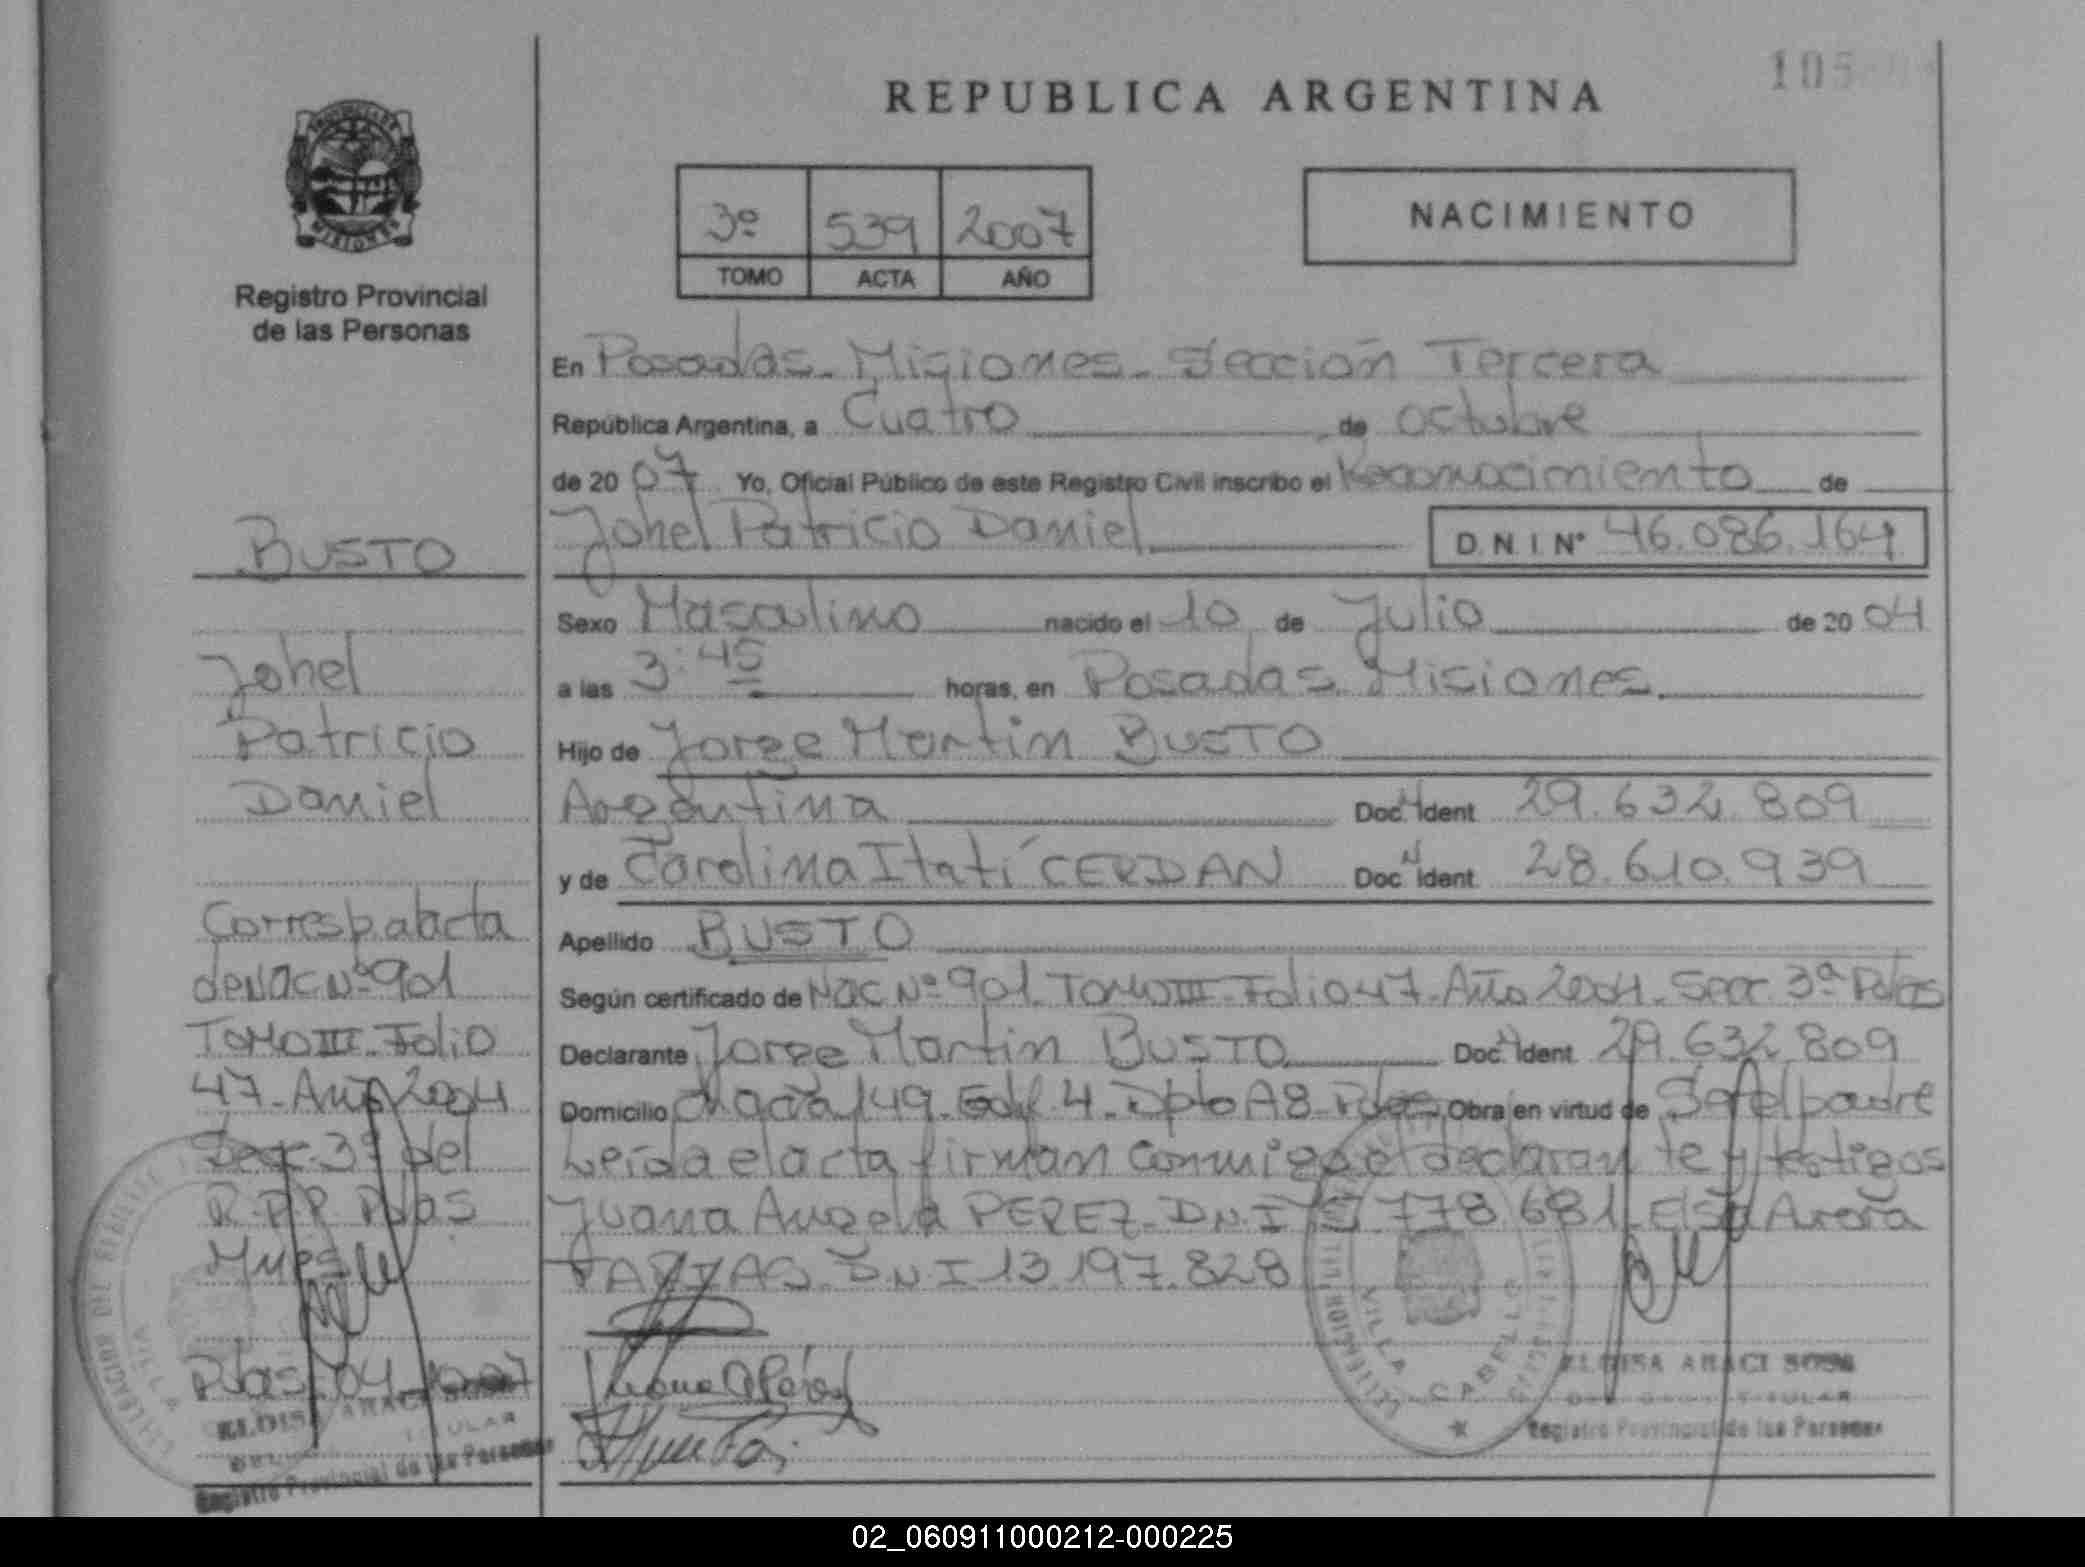 REPUBLICA ARGENTINA
105
MISIONES
Registro Provincial
de las Personas
3º 539 2007
TOMO ACTA AÑO
NACIMIENTO
En Posadas - Misiones - Sección Tercera
República Argentina, a Cuatro de octubre
de 2007 Yo, Oficial Público de este Registro Civil inscribo el Reconocimiento de
Johel Patricio Daniel D.N.I. Nº 46.086.164
Sexo Masculino nacido el 10 de Julio de 2004
a las 3:45 horas, en Posadas. Misiones
Hijo de Jorge Martin BUSTO
Argentina Doc. Ident 29.632.809
y de Carolina Itatí CERDAN Doc. Ident. 28.610.939
Apellido BUSTO
Según certificado de Nac Nº 901. Tomo III. Folio 47. Año 2004. Secc. 3ª Pdas
Declarante Jorge Martin BUSTO Doc. Ident. 29.632.809
Domicilio 149. Edif. 4. Dpto A8. Pdas Obra en virtud de Ser el padre
Leida el acta firman conmigo el declarante y testigos
Juana Angela PEREZ. D.N.I 778.681. Elsa
D.N.I 13.197.828
BUSTO
Johel
Patricio
Daniel
Corresp. al acta
de Nac Nº 901
Tomo III. Folio
47. Año 2004
Secc. 3ª del
R.P.P. Pdas
Mnes
Pdas. 04
ELOISA ARACI SOSA
TITULAR
Registro Provincial de las Personas
VILLA CABELLO
ELOISA ARACI
TITULAR
Registro Provincial de las Personas
02_060911000212-000225